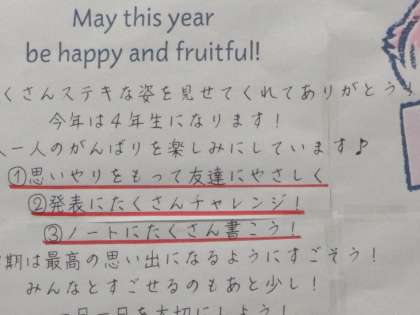 May this year
be happy and fruitful!
くさんステキな姿を見せてくれてありがとう
今年は4年生になります!
一人のがんばりを楽しみにしています♪
①思いやりをもって友達にやさしく
②発表にたくさんチャレンジ!
③ノートにたくさん書こう!
期は最高の思い出になるようにすごそう!
みんなとすごせるのもあと少し!
一日一日を大切にしよう!